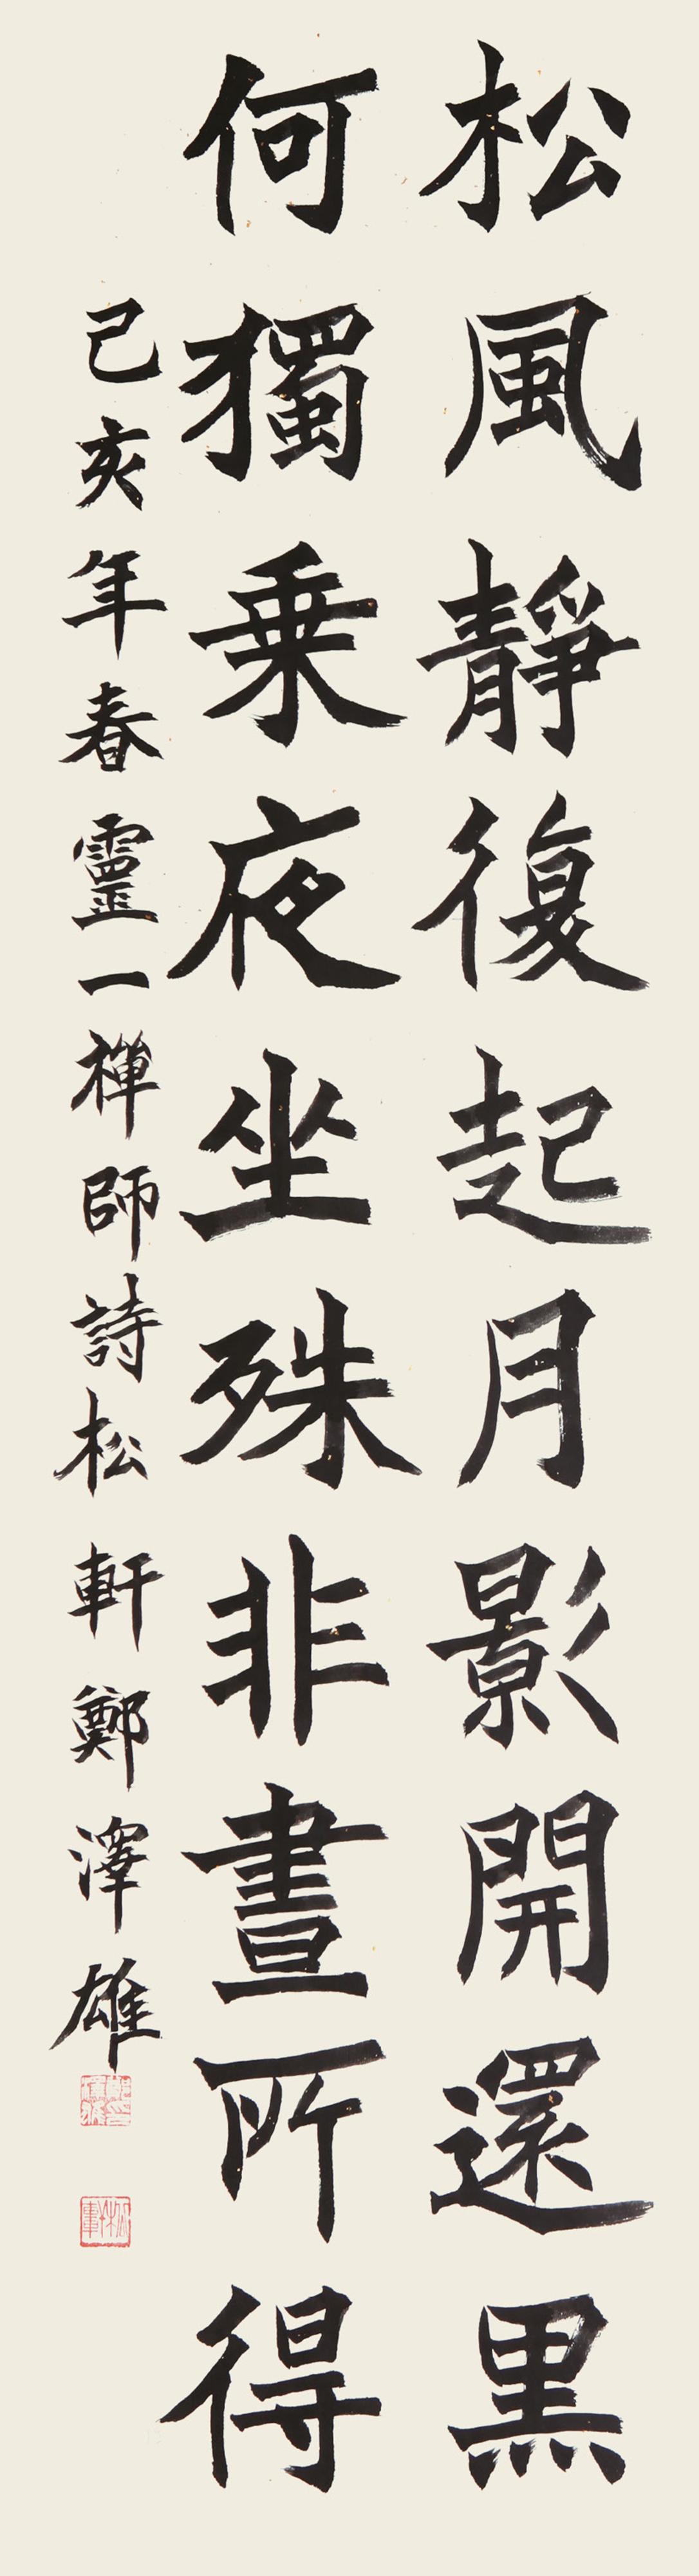 松風靜復起月影開還黑
何獨乗夜坐殊非晝所得
己亥年春靈一禪師詩松軒鄭澤雄
松軒